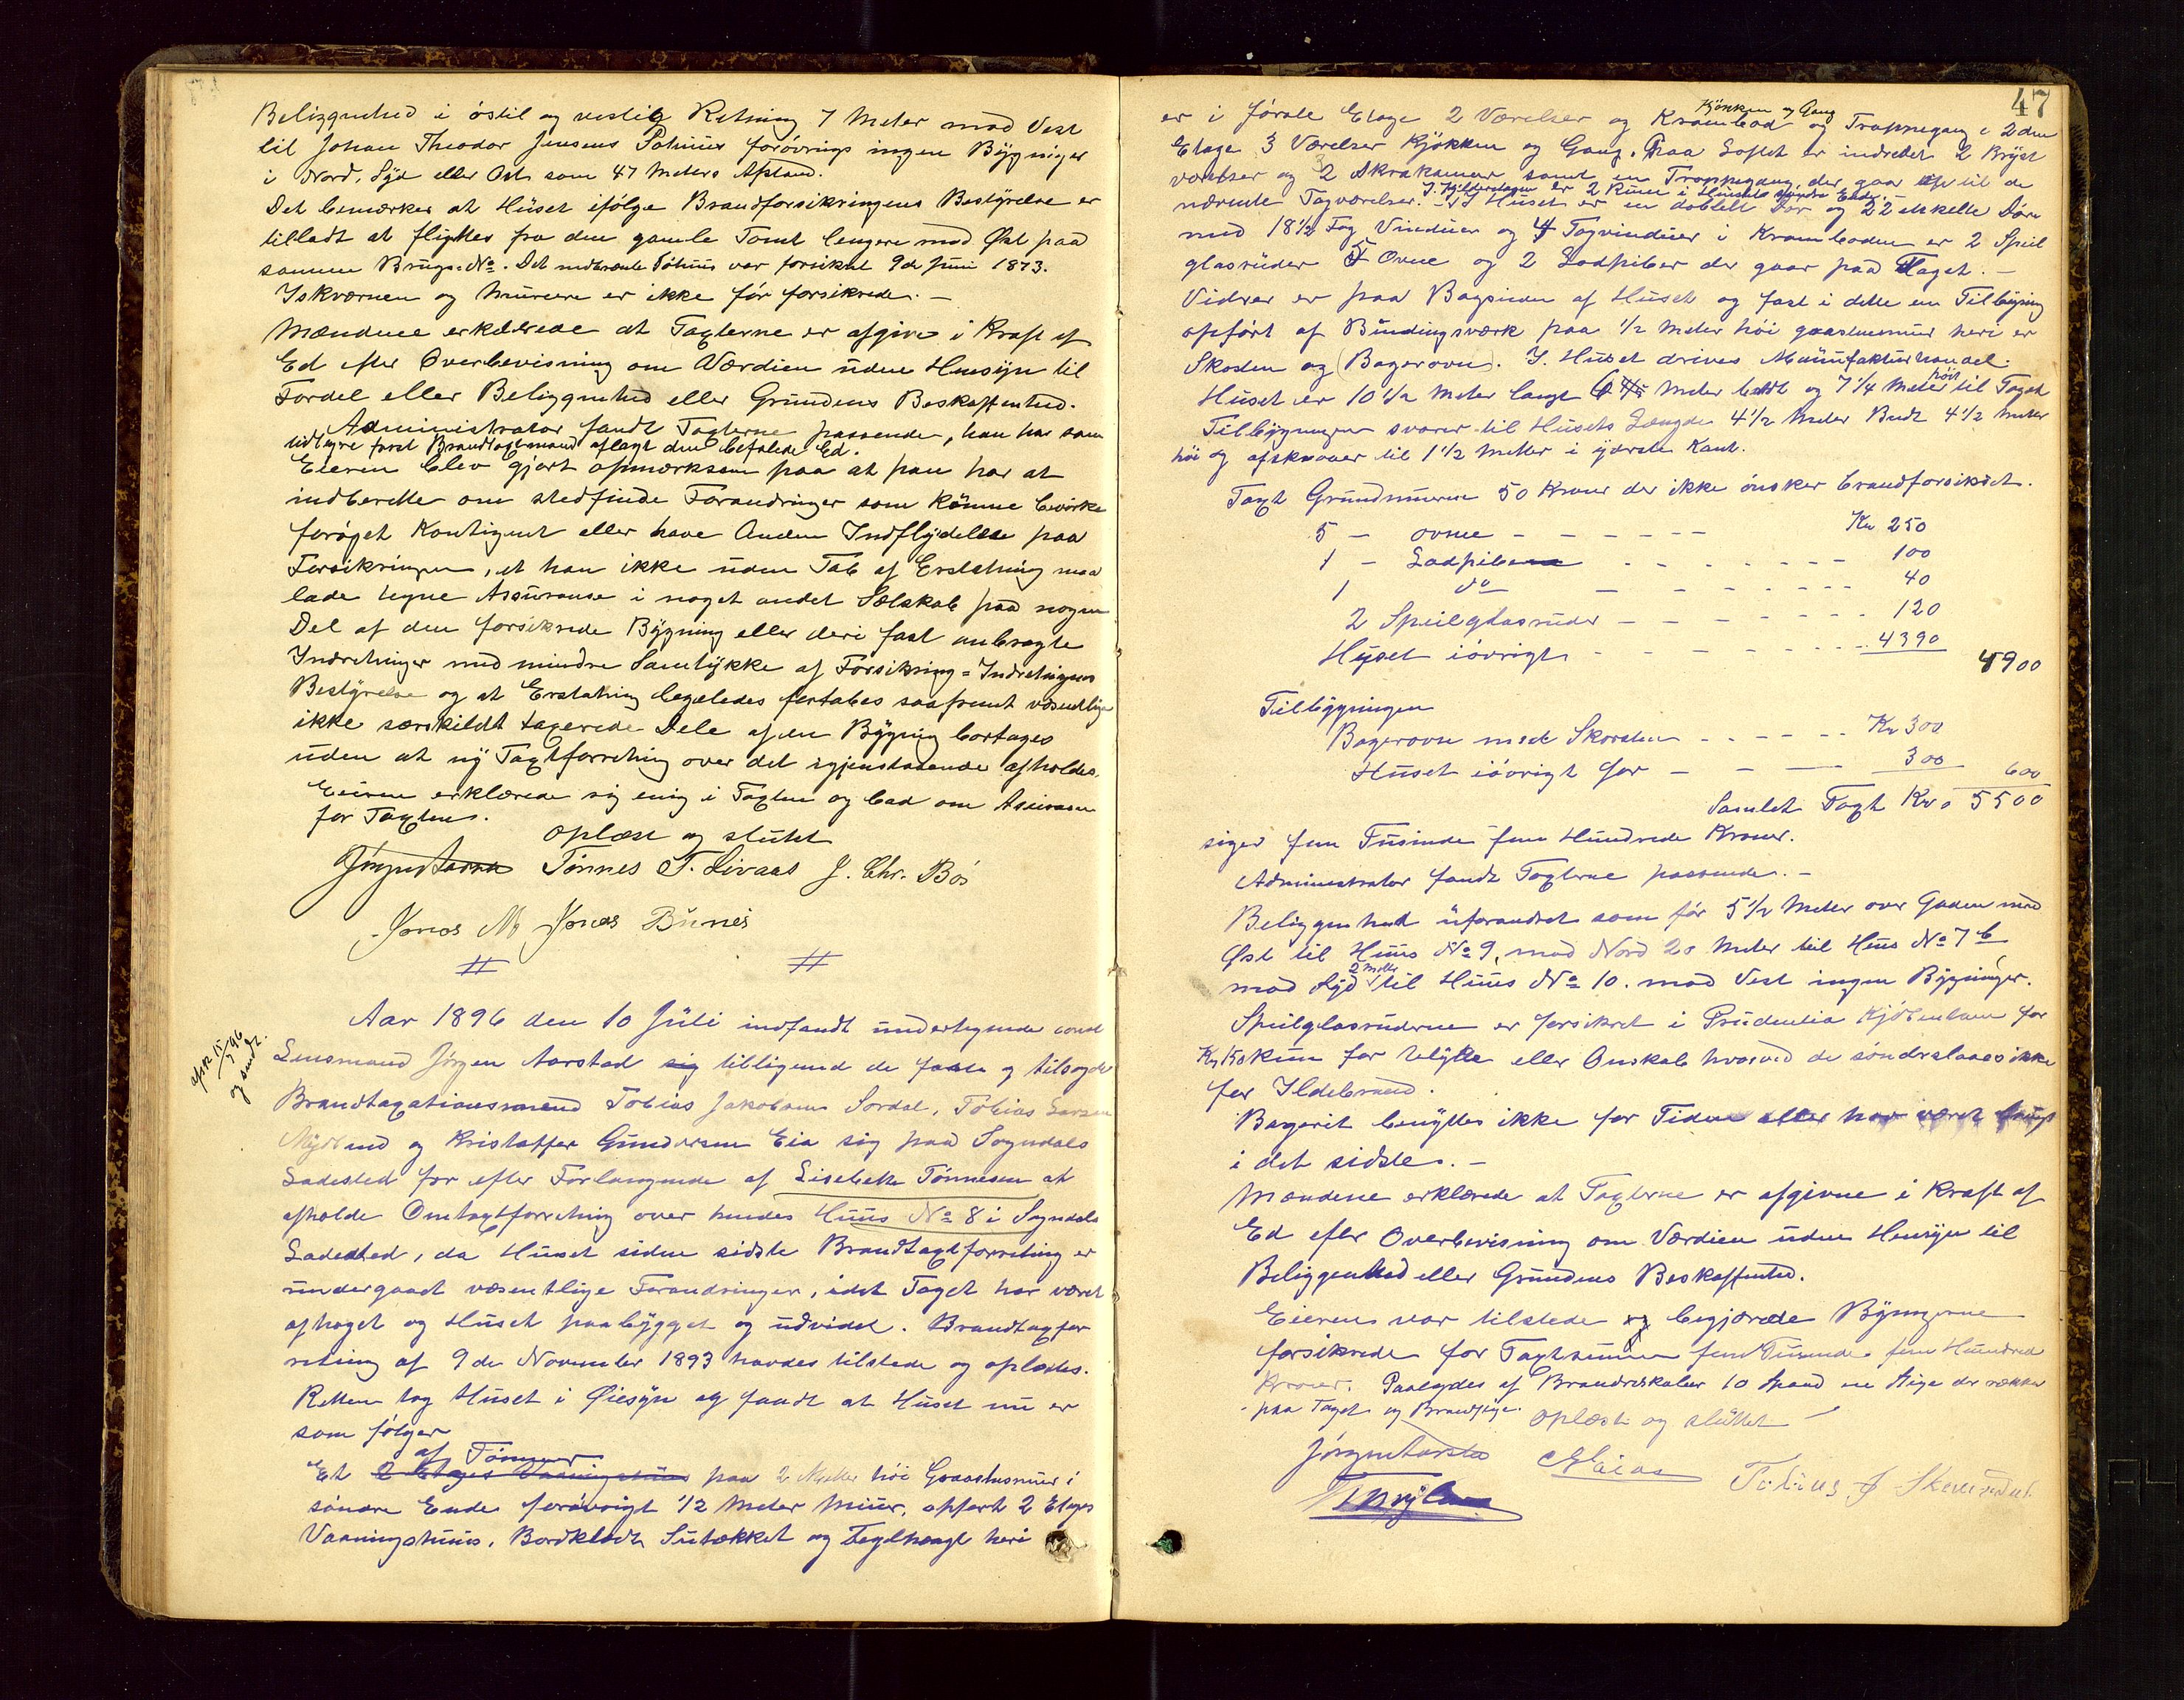 Beliggenhed i östlig og vestlig Retning 7 Meter mod Vest
til Johan Theodor Jensens Söhuus forövrigt ingen Bÿgninger
i Nord, Sÿd eller Öst som 47 Meters Afstand.
Det bemærkes at Huset ifölge Brandforsikringens Bestÿrelse er
tilladt at flÿttes fra den gamle Tomt lengere mod Øst paa
samme Brugs-No. Det nedbrændte Söhuus var forsikret 9de Juni 1873.
og Murene er ikke för forsikrede. –
Mændene erklærede at Taxterne er afgivne i Kraft af
Ed efter Overbevisning om Værdien uden Hensÿn til
Fordel eller Beliggenhed eller Grundens Beskaffenhed.
Administrator fandt Taxterne passende, han har som
tidligere forst Brandtaxtmand aflagt den befalede Ed.
Eieren blev gjort opmærksom paa at han har at
indberette om stedfinde Forandringer som kunne bevirke
foröget Kontigent eller have Anden Indflÿdelse paa
Forsikringen, at han ikke uden Tab af Erstatning maa
lade tegne Assurance i noget andet Selskab paa nogen
Del af den forsikrede Bÿgning eller deri fast anbragte
Indretninger med mindre Samtÿkke af Forsikring=Indretningens
Bestÿrelse og at Erstatning ligeledes fortabes saafremt væsentlige
ikke særskildt taxerede Dele af en Bÿgning borttages
uden at nÿ Taxtforretning over det igjenstaaende afholdes.
Eieren erklærede sig enig i Taxten og bad om Assurance
for Taxten.
Oplæst og sluttet
Jörgen Aarstad Tönnes T. Livaas J. Chr. Bös
Jonas M. Jonas Bunes
# #
afsk 15/7 96
og sendt.
Aar 1896 den 10 Juli indfandt undertegnede const
Lensmand Jörgen Aarstad sig tilligemed de faste og tilsagte
Brandtaxationsmænd Tobias Jakobsen Sordal, Tobias Larsen
og Kristoffer Gundersen Eia sig paa Sogndals
Ladested for efter Forlangende af Lisebette Tönnesen at
afholde Omtaxtforretning over hendes Huus No 8 i Sogndals
Ladested, da Huset siden sidste Brandtaxtforretning er
undergaaet væsentlige Forandringer, idet Taget har været
aftaget og Huset paabÿgget og udvidet. Brandtaxtfor
retning af 9de November 1893 havdes tilstede og oplæstes.
Retten tog Huset i Øiesÿn og fandt at Huset nu er
som fölger
af Tömmer
Et 2 Etages Vaaningshuus paa 2 Meter höi Graastensmur i
söndre Ende forövrigt 1/2 Meter Muur, opfört 2 Etages
Vaaningshuus, Bordklædt, og Teglhængt heri
47
Kjökken og Gang
er i förste Etage 2 Værelser og Krambod og Trappegang i 2den
Etage 3 Værelser Kjökken og Gang. Paa Loftet er indredet 2 Kvist
værelser og 2 Skrakamer samt en Trappegang, der gaar op til de
I Kjelderetagen er 2 Rum i Husets söndre Ende.
nævnte Tagværelser. – I Huset er en dobbelt Dör og 22 enkelte Döre
med 18 1/2 Fag Vinduer og 4 Tagvinduer i Kramboden er 2 Speil
glasruder 5 Ovne og 2 Lodpiber der gaar paa Taget. –
Vidrer er paa Bagsiden af Huset og fast i dette en Tilbÿgning
opfört af Bindingsværk paa 1/2 Meter höi graastensmur heri er
Skosten og (Bagerovn). I Huset drives Manufakturhandel.
Huset er 10 1/2 Meter langt 6 Meter bredt og 7 1/4 Meter höit til Taget
Tilbÿgningen svarer til Husets Længde 4 1/2 Meter Bredt 4 1/2 Meter
höi og afskraaer til 1 1/2 Meter i ÿderste Kant.
Taxt Grundmurene 50 Kroner der ikke önskes brandforsikret.
5 – Ovne – – – – – – Kr 250
1 – Lodpibe – – – – – – 100
1 do – – – – – – 40
2 Speilglasruder – – – – – – 120
Huset iövrigt – – – – – – 4390
4900
Tilbÿgningen
Bagerovn med Skorsten – – – – – Kr 300
Huset iövrigt for – – – 300 600
Samlet Taxt Kr 5500
siger fem Tusinde fem Hundrede Kroner.
Administrator fandt Taxterne passende. –
Beliggenhed uforandret som för 5 1/2 Meter over Gaden mod
Øst til Huus No 9, mod Nord 20 Meter til Huus No 7 b
2 Meter
mod Sÿd til Huus No 10. mod Vest ingen Bÿgninger.
Speilglasruderne er forsikret i Prudentia Kjöbenhavn for
Kr 150 kun for Ulÿkke eller Ondskab hvorved de sönderslaaes ikke
for Ildebrand.
Bageriet benÿttes ikke for Tiden eller har været brugt
i det sidste. –
Mændene erklærede at Taxterne er afgivne i Kraft af
Ed efter Overbevisning om Værdien uden Hensÿn til
Beliggenhed eller Grundens Beskaffenhed.
Eieren var tilstede og begjærede Bÿgningerne
forsikrede for Taxtsummen fem Tusinde fem Hundrede
Kroner. Paalagdes af Brandredskaber 10 Spand en Stige der rækker
paa Taget og Brandhage. Oplæst og sluttet
Jörgen Aarstad